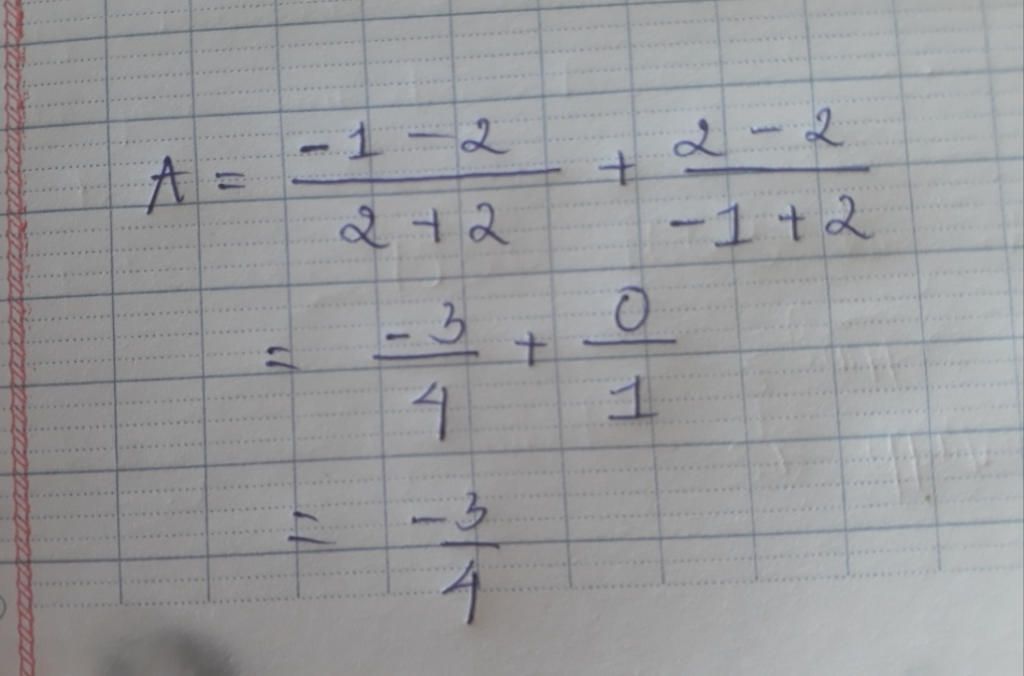 A = \frac{-1-2}{2+2} + \frac{2-2}{-1+2}
= \frac{-3}{4} + \frac{0}{1}
= \frac{-3}{4}